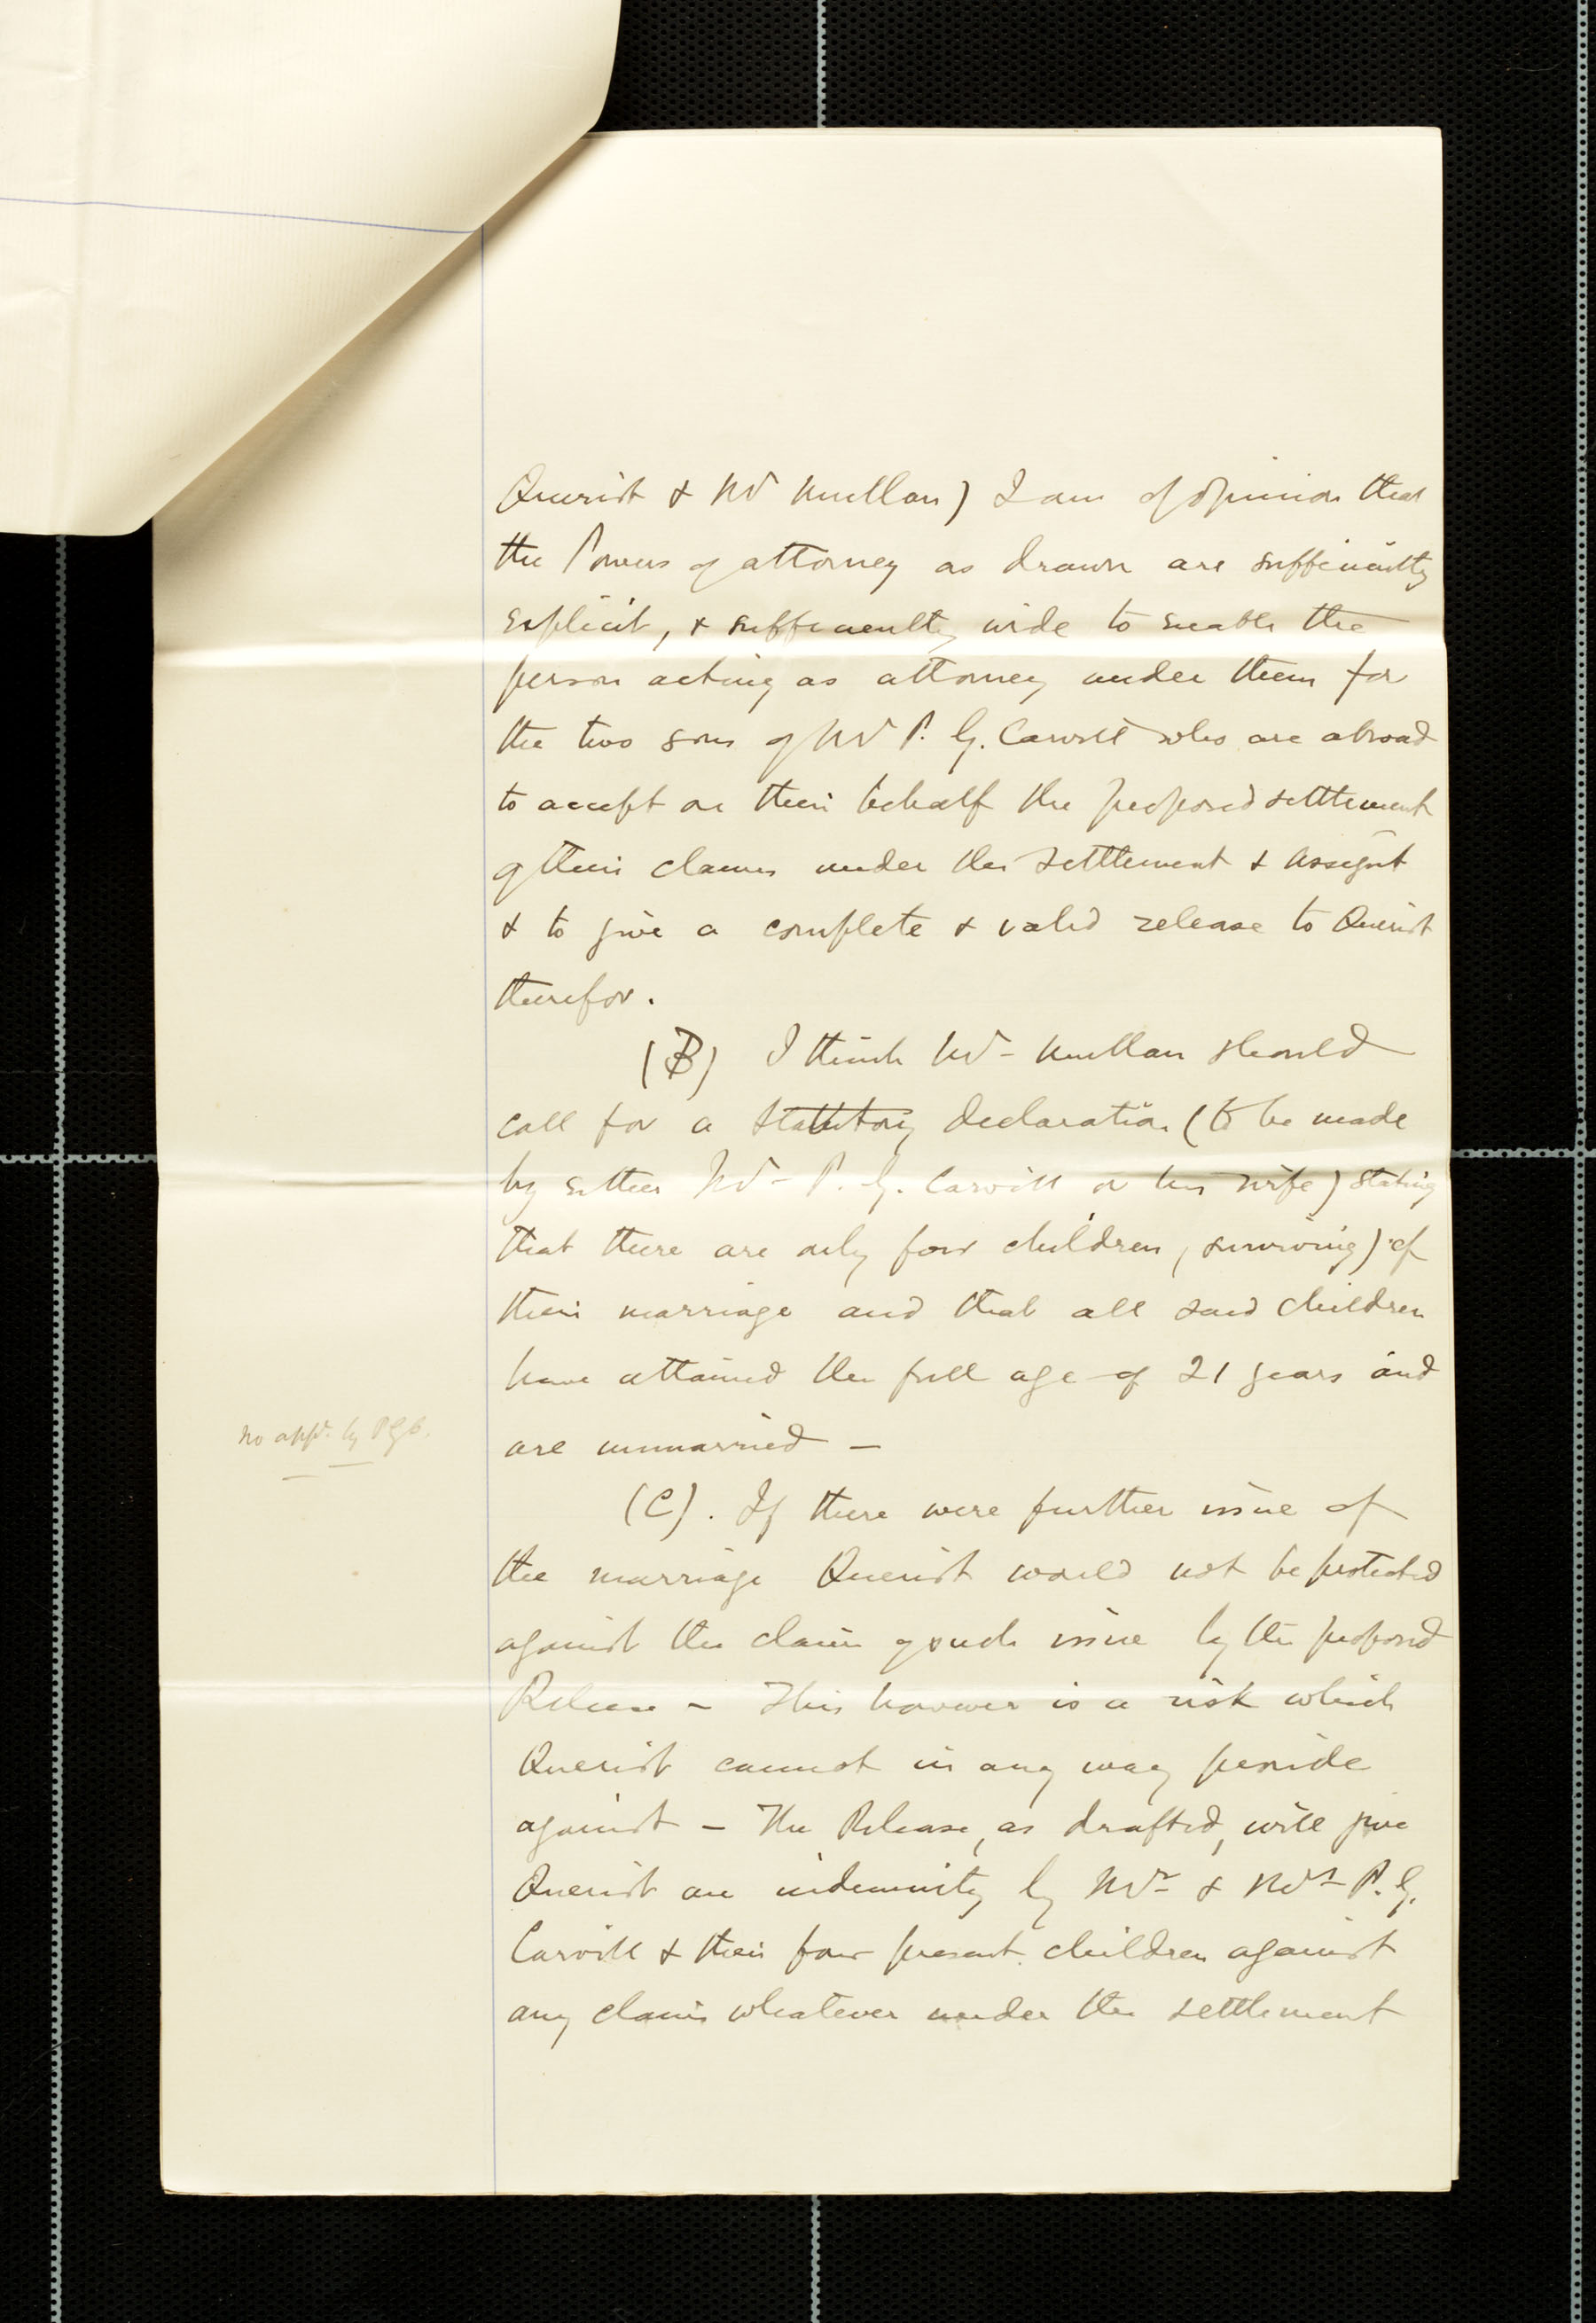 Querist & Mr Mullan) I am of opinion that
the Powers of attorney as drawn are sufficiently
explicit, & sufficiently wide to enable the
person acting as attorney under them for
the two sons of Mr P. G. Carvill who are abroad
to accept on their behalf the proposed settlement
of their claims under the Settlement & Assignt
& to give a complete & valid release to Querist
therefor.
(B) I think Mr - Mullan should
call for a Statutory declaration (to be made
by either Mr - P. G. Carvill or his wife) stating
that there are only four children (surviving) of
their marriage and that all said children
have attained the full age of 21 years and
are unmarried -
no appt. by PGC.
(C). If there were further issue of
the marriage Querist would not be protected
against the claim of such issue by the proposed
Release - This however is a risk which
Querist cannot in any way provide
against - The Release, as drafted, will give
Querist an indemnity by Mr & Mrs P. G.
Carvill & their four present children against
any claim whatever under the settlement